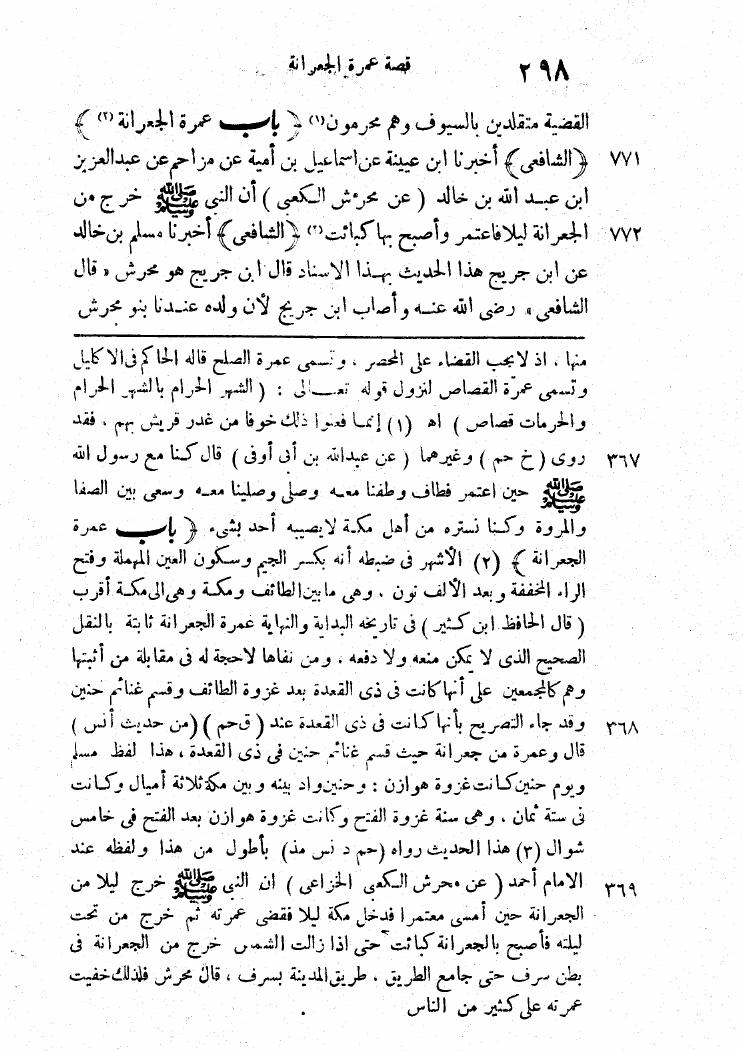 ٢٩٨ قصة عمرة الجعرانة
القضية متقلدين بالسيوف وهم محرمون(١) ﴿ باب عمرة الجعرانة (٢) ﴾
٧٧١ ﴿الشافعى﴾ أخبرنا ابن عيينة عن اسماعيل بن أمية عن مزاحم عن عبدالعزيز
ابن عبد الله بن خالد ( عن محرش الكعبى ) أن النبى ﷺ خرج من
٧٧٢ الجعرانة ليلا فاعتمر وأصبح بها كبائت(٣) ﴿الشافعى﴾ أخبرنا مسلم بن خالد
عن ابن جريج هذا الحديث بهذا الاسناد قال ابن جريج هو محرش « قال
الشافعى » رضى الله عنه وأصاب ابن جريج لأن ولده عندنا بنو محرش
منها ، اذ لايجب القضاء على المحصر ، وتسمى عمرة الصلح قاله الحاكم فى الاكليل
وتسمى عمرة القصاص لنزول قوله تعالى : ( الشهر الحرام بالشهر الحرام
والحرمات قصاص ) اه (١) إنما فعلوا ذلك خوفا من غدر قريش بهم ، فقد
٣٦٧ روى ( خ حم ) وغيرهما ( عن عبدالله بن أبى أوفى ) قال كنا مع رسول الله
ﷺ حين اعتمر فطاف وطفنا معه وصلى وصلينا معه وسعى بين الصفا
والمروة وكنا نستره من أهل مكة لايصيبه أحد بشىء ﴿ باب عمرة
الجعرانة ﴾ (٢) الأشهر فى ضبطه أنه بكسر الجيم وسكون العين المهملة وفتح
الراء المخففة وبعد الألف نون ، وهى ما بين الطائف ومكة وهى الى مكة أقرب
( قال الحافظ ابن كثير ) فى تاريخه البداية والنهاية عمرة الجعرانة ثابتة بالنقل
الصحيح الذى لا يمكن منعه ولا دفعه ، ومن نفاها لاحجة له فى مقابلة من أثبتها
وهم كالمجمعين على أنها كانت فى ذى القعدة بعد غزوة الطائف وقسم غنائم حنين
٣٦٨ وقد جاء التصريح بأنها كانت فى ذى القعدة عند ( ق حم ) ( من حديث أنس )
قال وعمرة من جعرانة حيث قسم غنائم حنين فى ذى القعدة ، هذا لفظ مسلم
ويوم حنين كانت غزوة هوازن : وحنين واد بينه وبين مكة ثلاثة أميال وكانت
فى ستة ثمان ، وهى سنة غزوة الفتح وكانت غزوة هوازن بعد الفتح فى خامس
شوال (٣) هذا الحديث رواه ( حم د نس مذ ) بأطول من هذا ولفظه عند
٣٦٩ الامام أحمد ( عن محرش الكعبى الخزاعى ) ان النبى ﷺ خرج ليلا من
الجعرانة حين أمسى معتمرا فدخل مكة ليلا فقضى عمرته ثم خرج من تحت
ليلته فأصبح بالجعرانة كبائت حتى اذا زالت الشمس خرج من الجعرانة فى
بطن سرف حتى جامع الطريق ، طريق المدينة بسرف ، قال محرش فلذلك خفيت
عمرته على كثير من الناس .